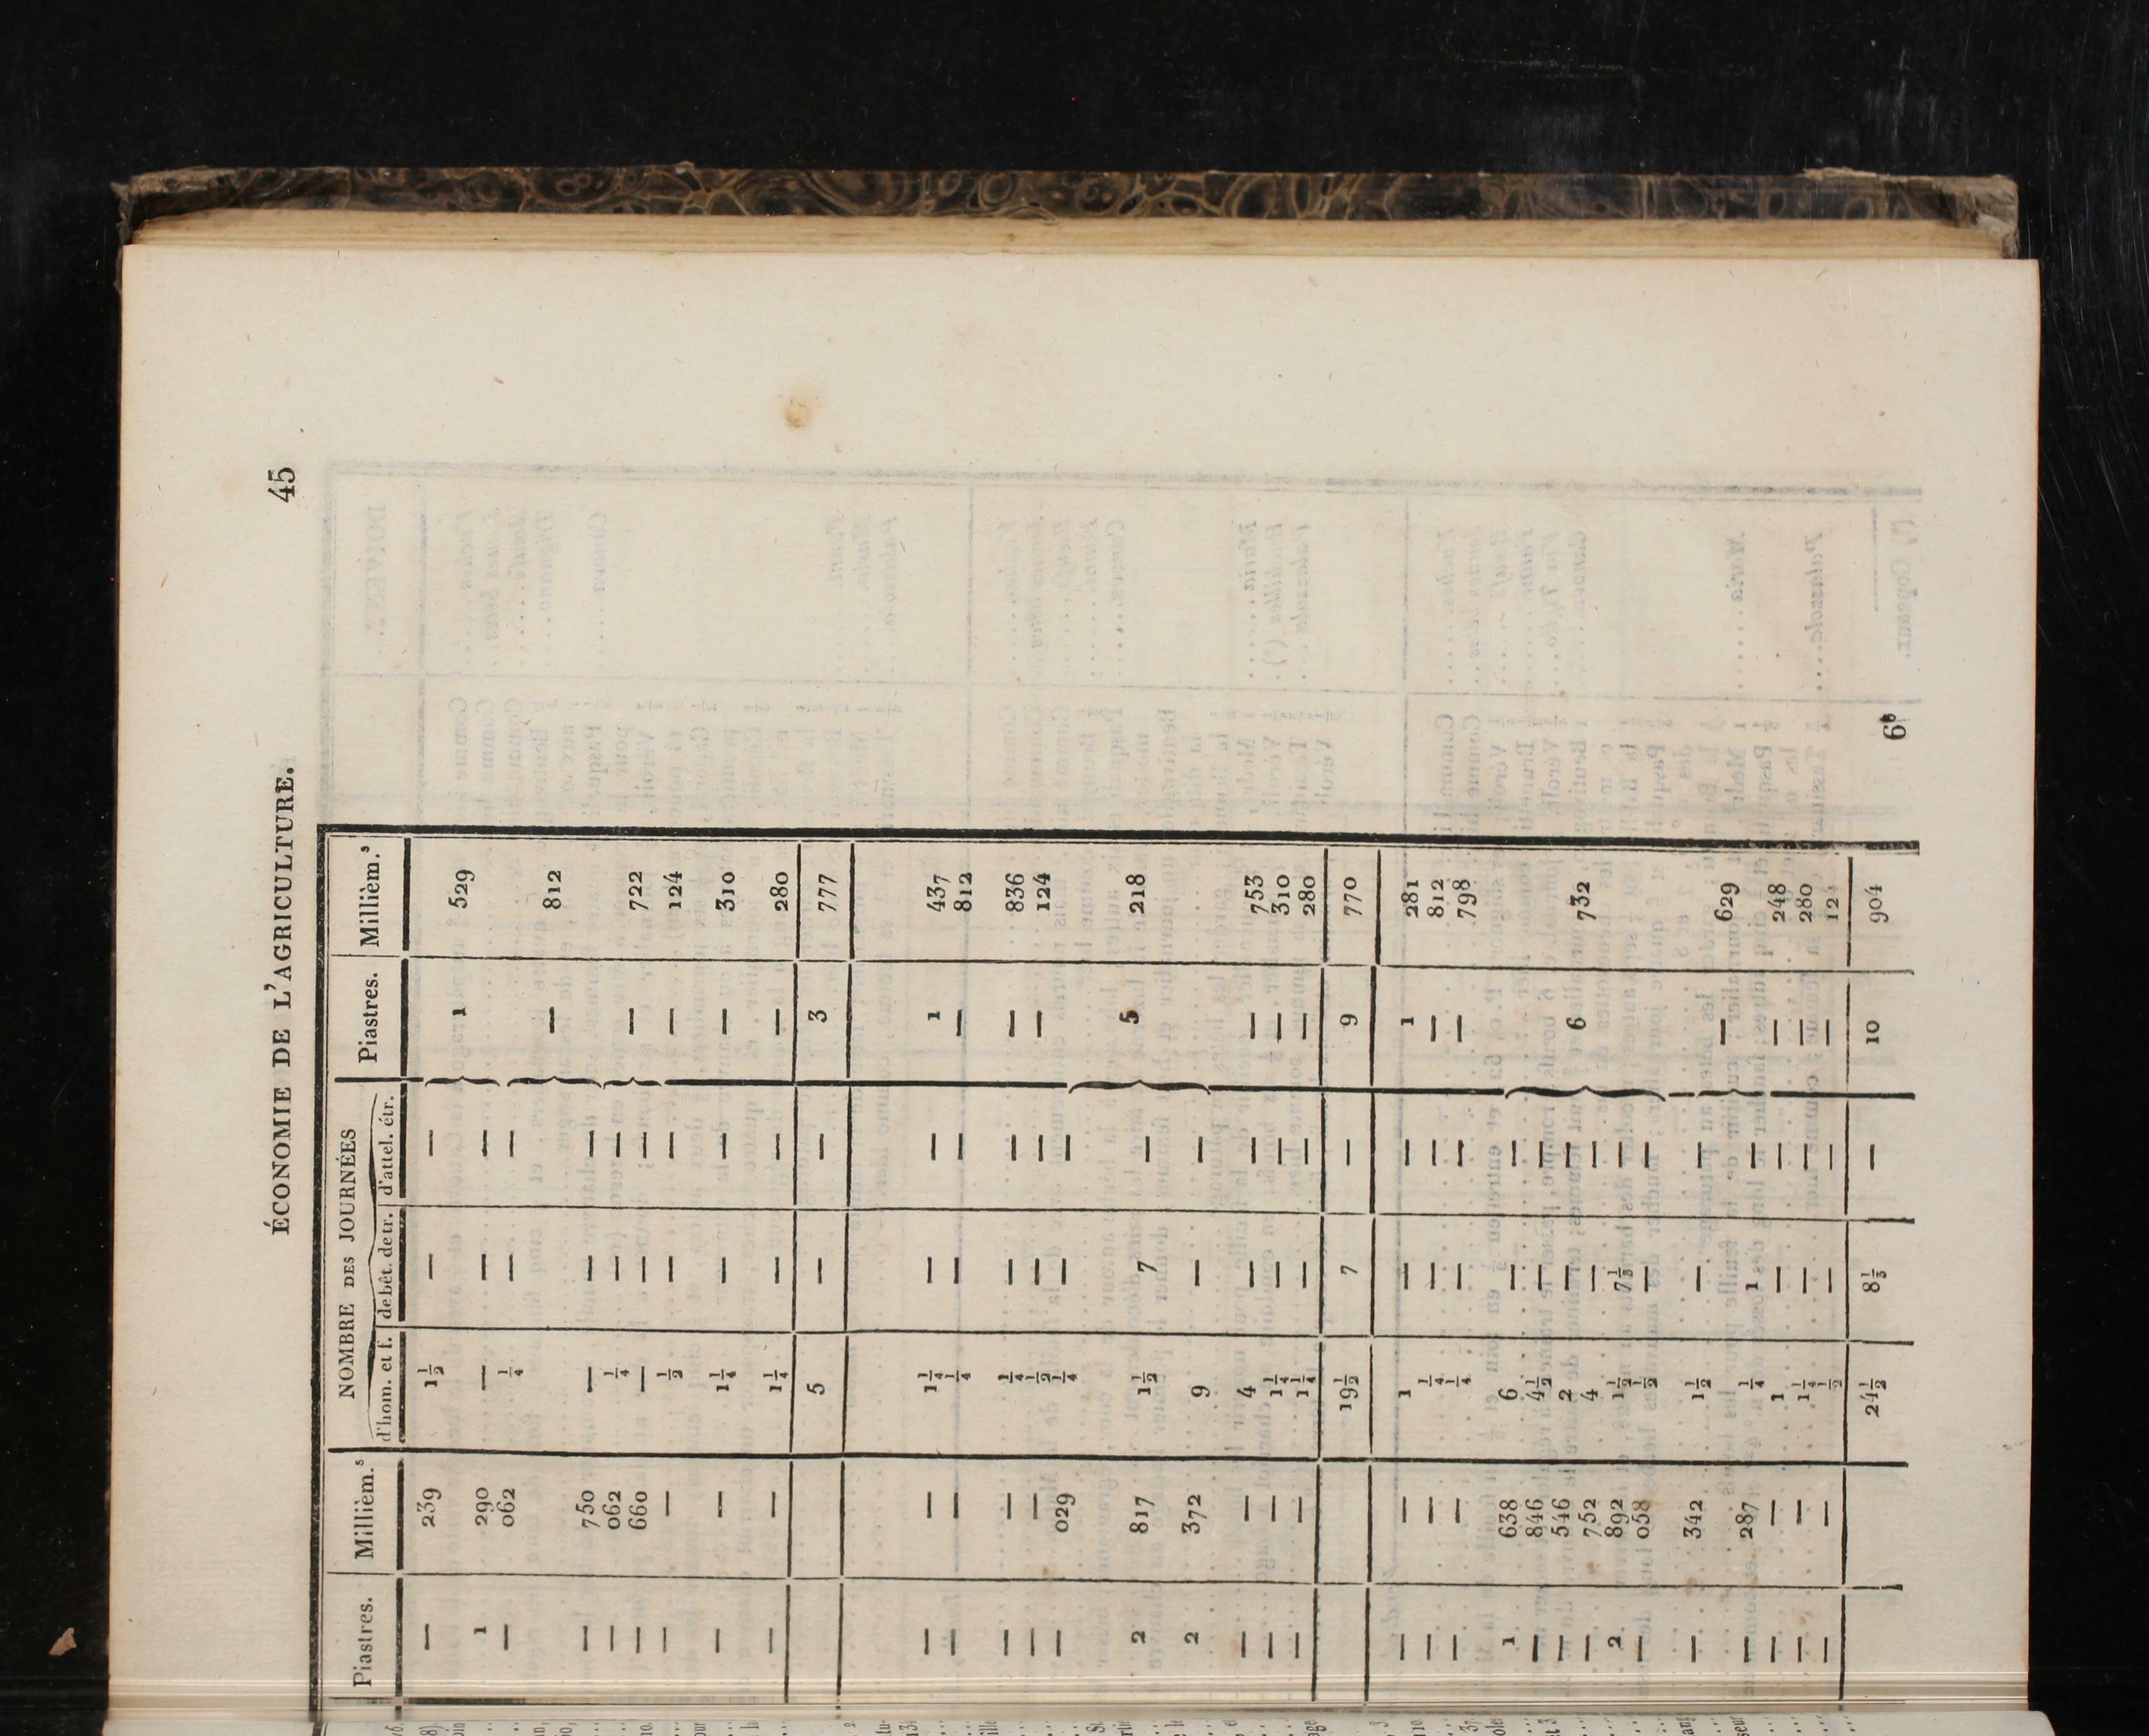 ÉCONOMIE DE L'AGRICULTURE. 45
NOMBRE DES JOURNÉES
Piastres. Millièm.s d'hom. et f. de bêt. de tr. d'attel. étr. Piastres. Millièm.s
— 239 1 1/2 — —
1 529
1 290 — — —
— 062 1/4 — —
— 812
— 750 — — —
— 062 1/4 — —
— 722
— 660 — — —
— — 1/2 — — — 124
— — 1 1/4 — — — 310
— — 1 1/4 — — — 280
5 — — 3 777
— — 1 1/4 — — 1 437
— — 1/4 — — — 812
— — 1/4 — — — 836
— — 1/2 — — — 124
— 029 1/4 — —
2 817 1 1/2 7 — 5 218
2 372 9 — —
— — 4 — — — 753
— — 1 1/4 — — — 310
— — 1 1/4 — — — 280
19 1/2 7 — 9 770
— — 1 — — 1 281
— — 1/4 — — — 812
— — 1/4 — — — 798
1 638 6 — —
— 846 4 1/2 — —
— 546 2 — —
6 732
— 752 4 — —
2 892 1 1/2 7 1/3 —
— 058 1/2 — —
— 342 1 1/2 — —
— 629
— 287 1/4 1 —
— — 1 — — — 248
— — 1 1/4 — — — 280
— — 1/2 — — — 124
24 1/2 8 1/3 — 10 904
6b